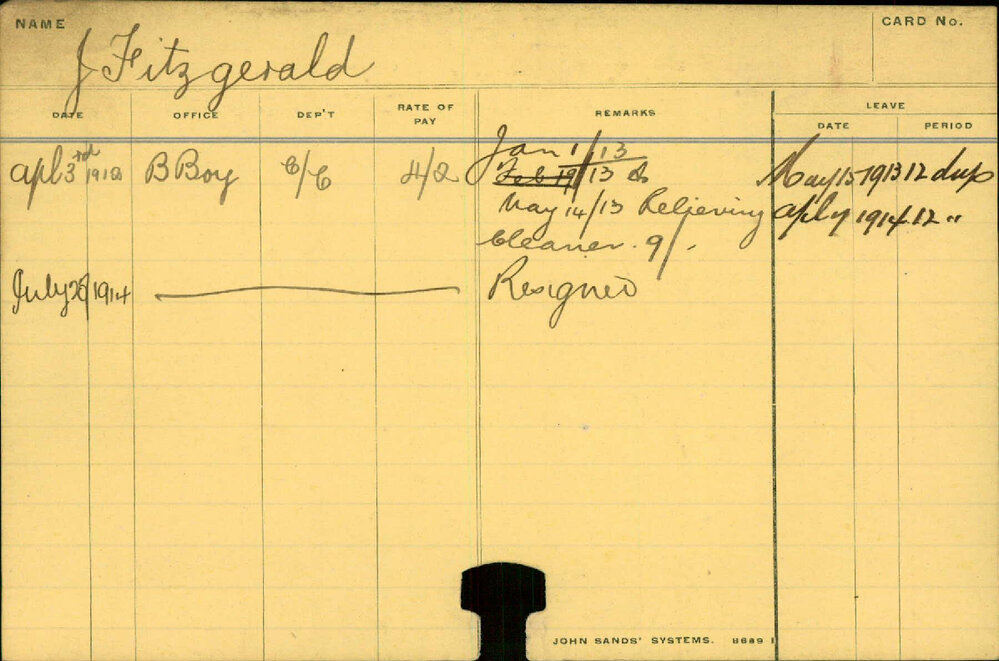 NAME
CARD No.
J Fitzgerald
LEAVE
DATE OFFICE DEP'T RATE OF PAY REMARKS DATE PERIOD
Jan 1/13
apl 3rd 1912 B Boy C/C 4/2 Feb 19/13 May 15 1913 12 days
May 14/13 Relieving apl 7 1914 12 "
Cleaner 9/-
July 28/1914 Resigned
JOHN SANDS' SYSTEMS. 8689